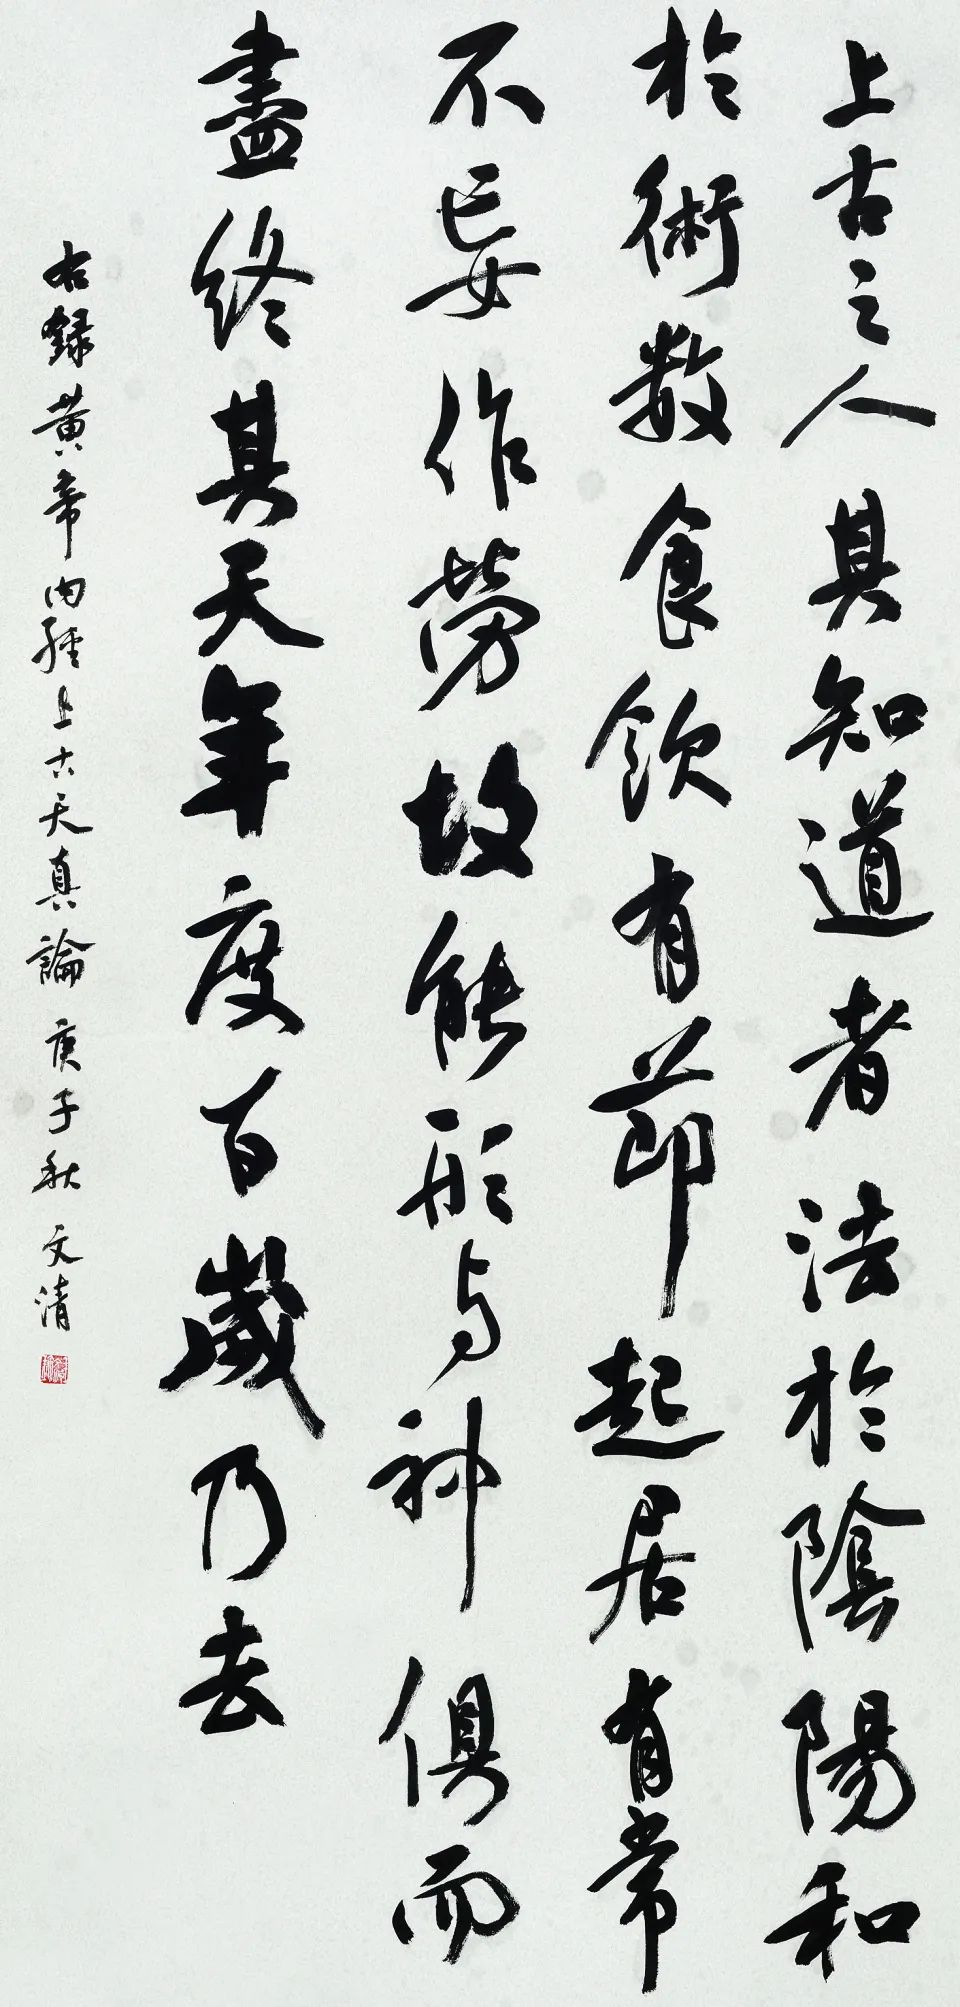 上古之人其知道者法於陰陽和
於術數食飲有節起居有常
不妄作勞故能形与神俱而
盡終其天年度百歲乃去
右録黄帝内經上古天真論庚子秋文清